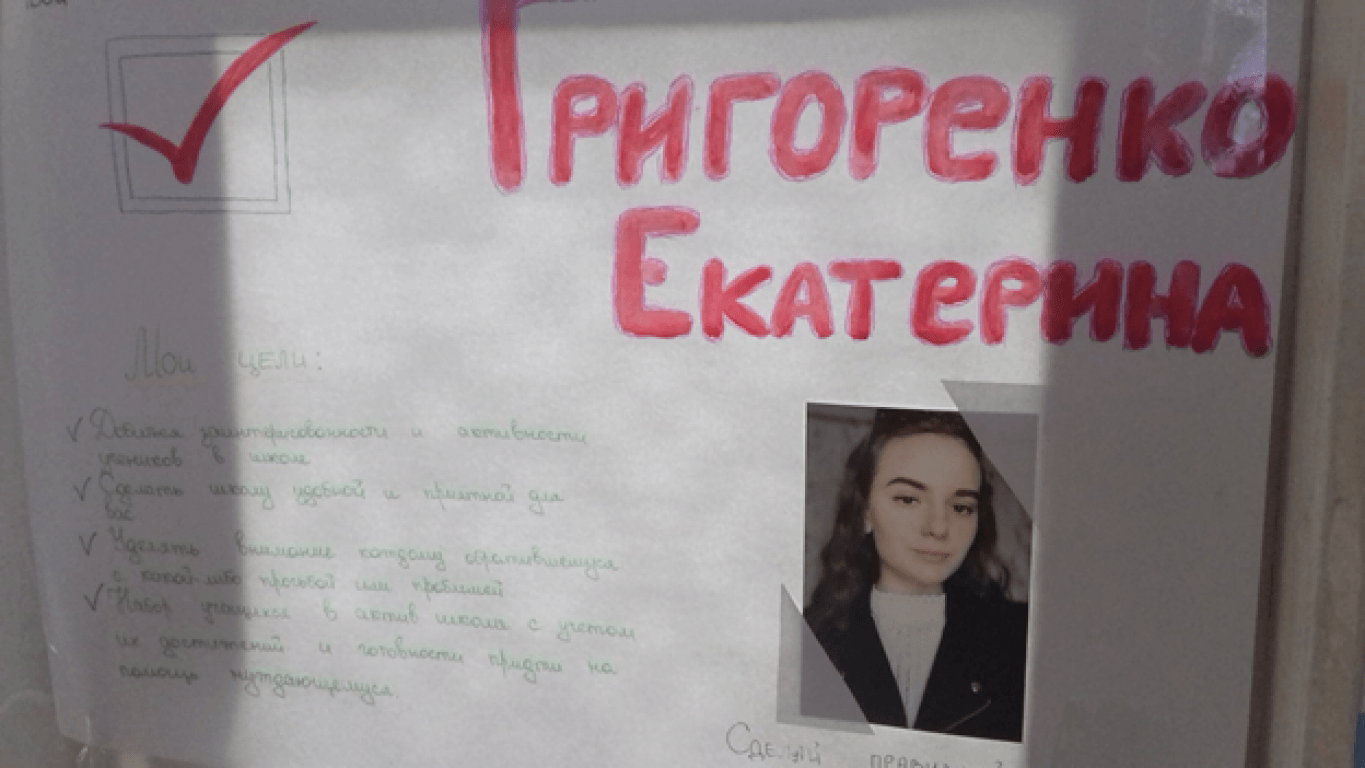 Григоренко
Екатерина
Мои цели:
Добиться заинтерисованности и активности
учеников в школе
Сделать школу удобной и приятной для
вас
Уделять внимание каждому обратившемуся
с какой-либо просьбой или проблемой
Набор учащихся в актив школы с учетом
их достижений и готовности придти на
помощь нуждающемуся.
Сделай